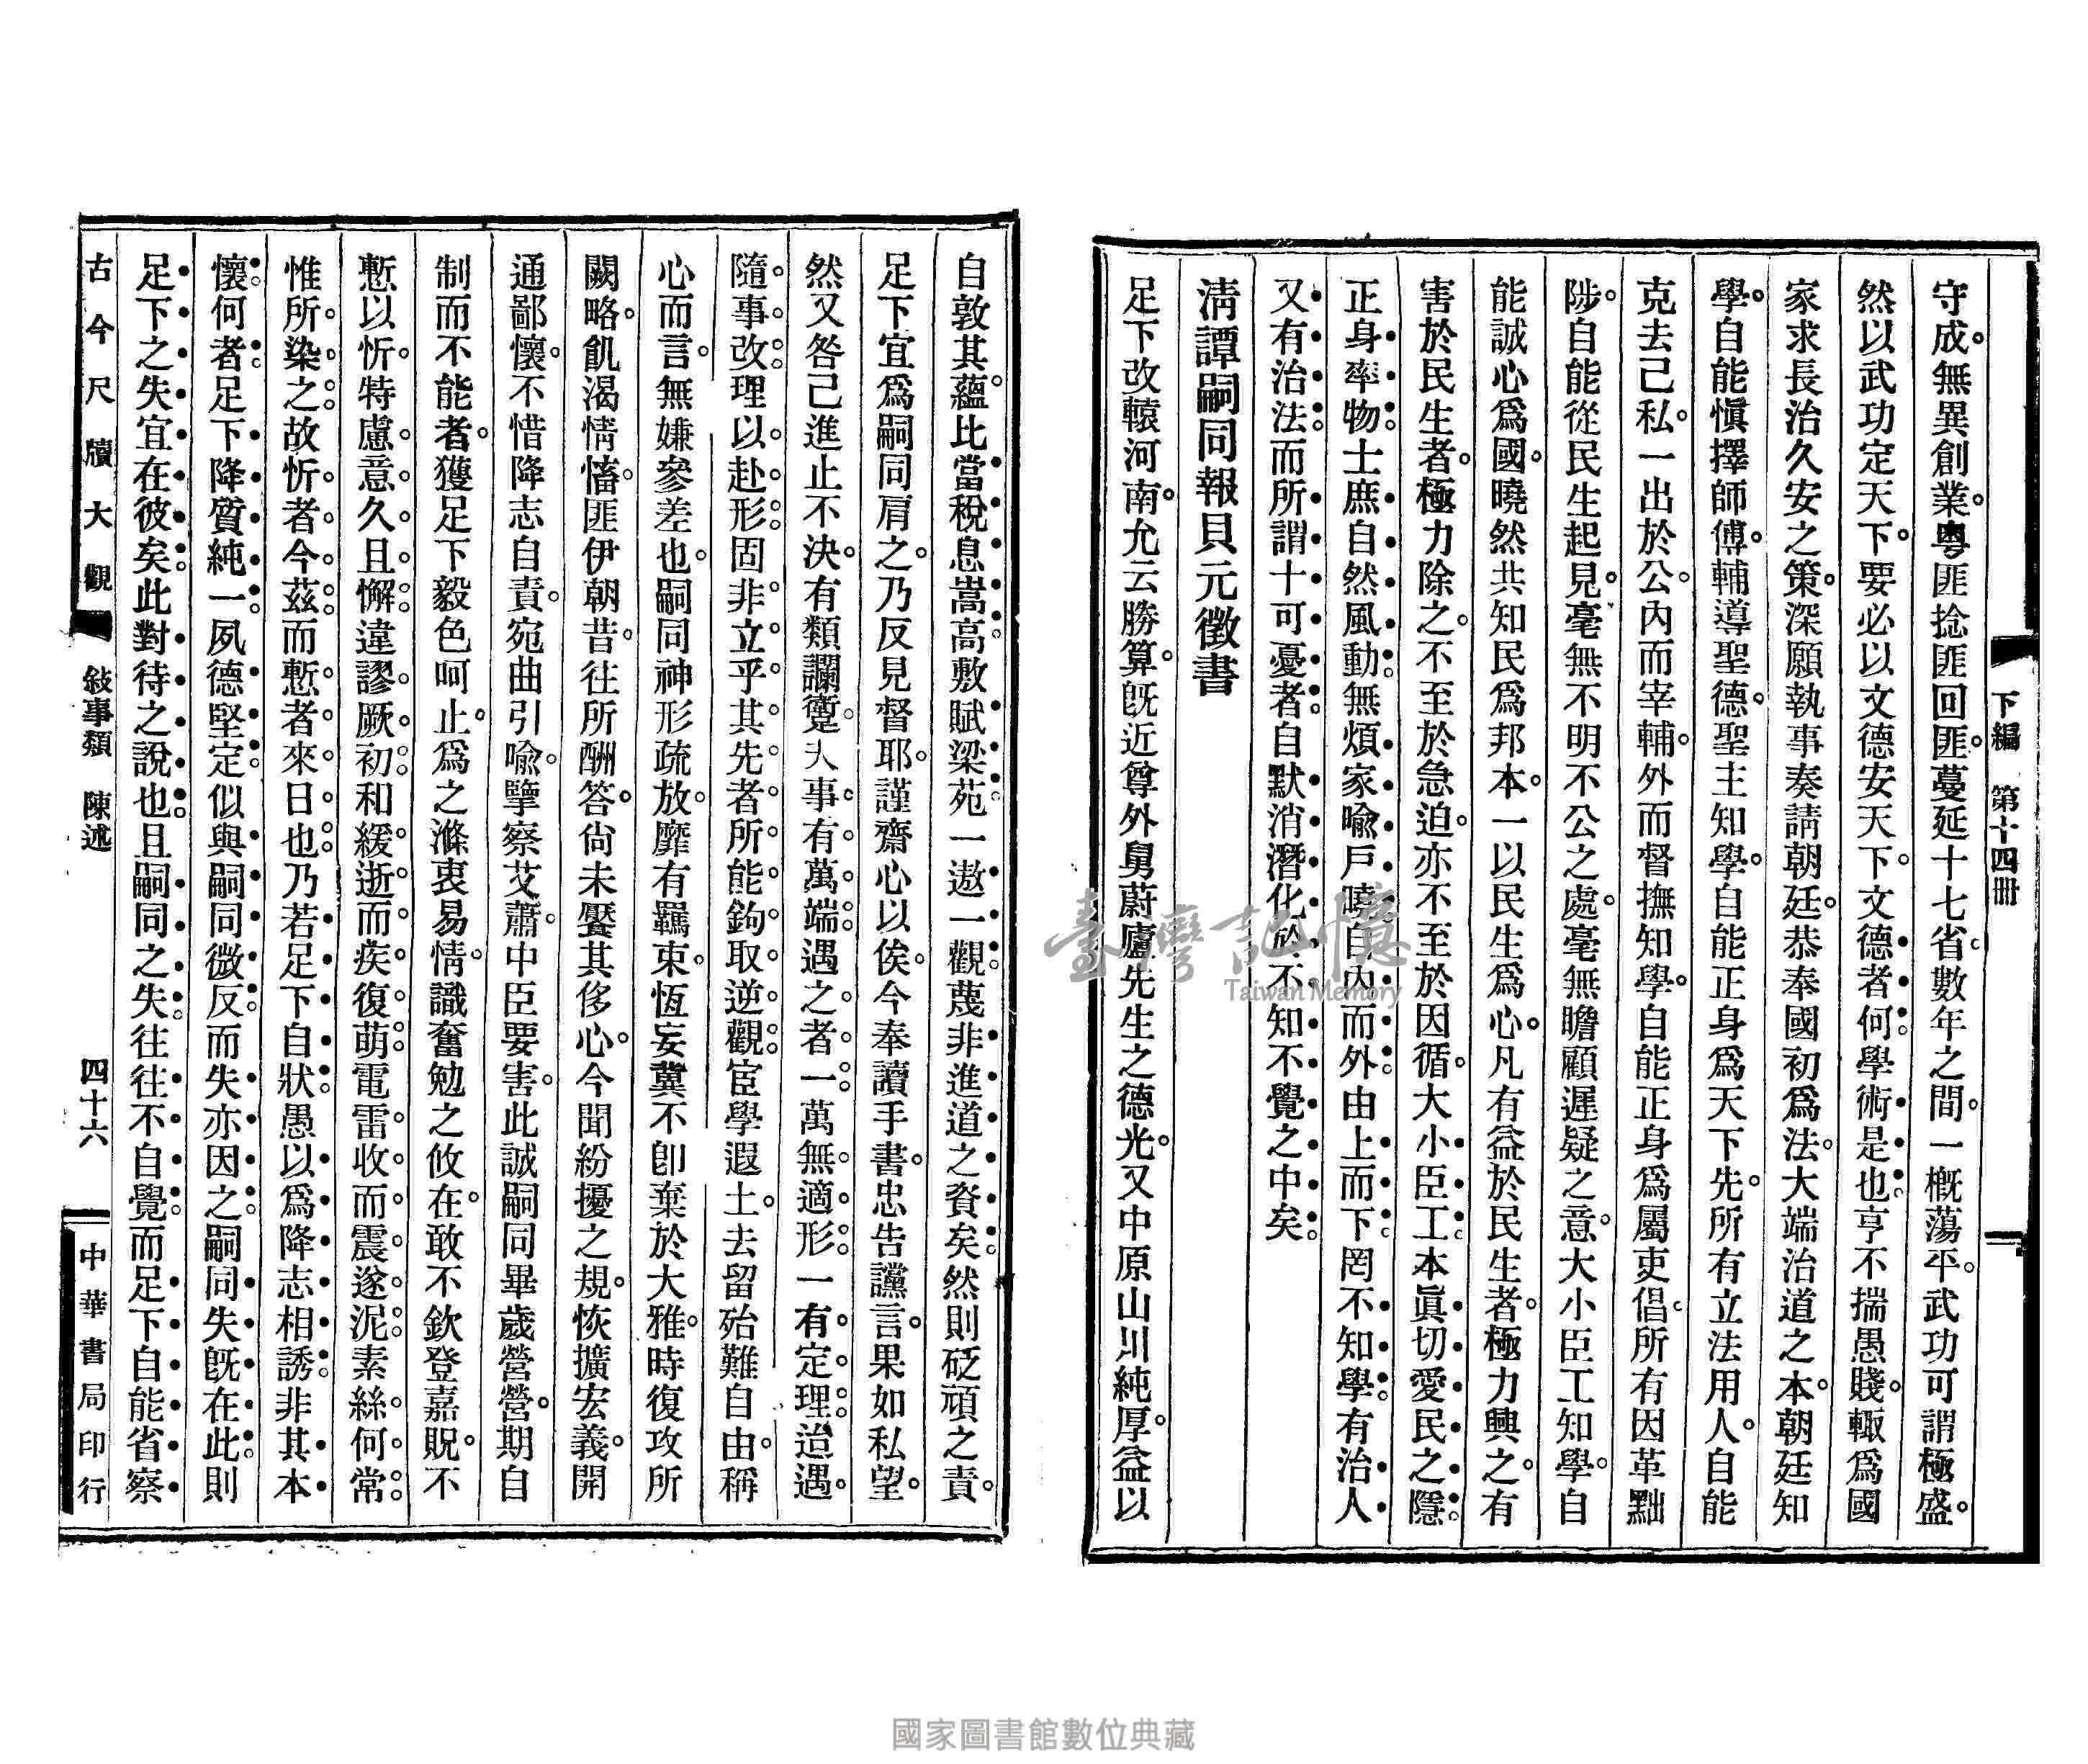 下編　第十四冊
守成。無異創業。粵匪捻匪回匪。蔓延十七省。數年之間。一概蕩平。武功可謂極盛。
然以武功定天下。要必以文德安天下。文德者何。學術是也。亨不揣愚賤。輒爲國
家求長治久安之策。深願執事奏請朝廷。恭奉國初爲法。大端治道之本。朝廷知
學。自能愼擇師傅。輔導聖德。聖主知學。自能正身爲天下先。所有立法用人。自能
克去己私。一出於公。內而宰輔。外而督撫知學。自能正身爲屬吏倡。所有因革黜
陟。自能從民生起見。毫無不明不公之處。毫無瞻顧遲疑之意。大小臣工知學。自
能誠心爲國。曉然共知民爲邦本。一以民生爲心。凡有益於民生者。極力興之。有
害於民生者。極力除之。不至於急迫。亦不至於因循。大小臣工。本眞切愛民之隱。
正身率物。士庶自然風動。無煩家喻戶曉。自內而外。由上而下。罔不知學。有治人
又有治法。而所謂十可憂者。自默消潛化於不知不覺之中矣。
淸譚嗣同報貝元徵書
足下改轅河南。允云勝算。旣近尊外舅蔚廬先生之德光。又中原山川純厚。益以
自敦其蘊。比當稅息嵩高。敷賦梁苑。一遨一觀。蔑非進道之資矣。然則砭頑之責。
足下宜爲嗣同肩之。乃反見督耶。謹齋心以俟。今奉讀手書。忠告讜言。果如私望。
然又咎己進止不決。有類讕躗。大事有萬端。遇之者一。萬無適形。一有定理。迨遇。
隨事改。理以赴形。固非立乎其先者所能鉤取逆觀。宦學遐土。去留殆難自由。稱
心而言。無嫌參差也。嗣同神形疏放。靡有羈束。恆妄冀不卽棄於大雅。時復攻所
闕略。飢渴情慉。匪伊朝昔。往所酬答。尙未饜其侈心。今聞紛擾之規。恢擴宏義。開
通鄙懷。不惜降志自責。宛曲引喻。擥察艾蕭。中臣要害。此誠嗣同畢歲營營。期自
制而不能者。獲足下毅色呵止。爲之滌衷易情。識奮勉之攸在。敢不欽登嘉貺。不
慙以忻。特慮意久且懈。違謬厥初。和緩逝而疾復萌。電雷收而震遂泥。素絲何常。
惟所染之。故忻者今茲。而慙者來日也。乃若足下自狀愚以爲降志相誘。非其本
懷。何者。足下降質純一。夙德堅定。似與嗣同微反。而失亦因之。嗣同失旣在此。則
足下之失。宜在彼矣。此對待之說也。且嗣同之失。往往不自覺。而足下自能省察
古今尺牘大觀　敍事類　陳述　四十六　中華書局印行
臺灣記憶
Taiwan Memory
國家圖書館數位典藏